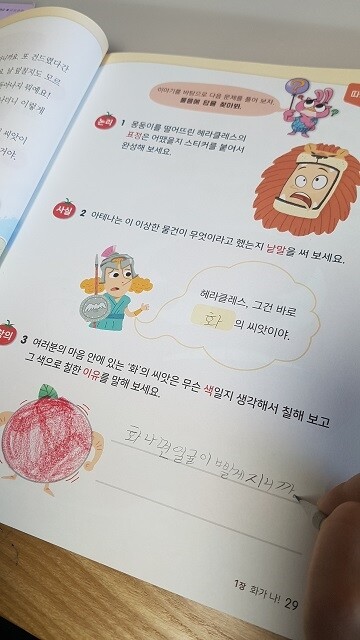 이야기를 바탕으로 다음 문제를 풀어 보자.
논리 1 몽둥이를 떨어뜨린 헤라클레스의
표정은 어땠을지 스티커를 붙여서
완성해 보세요.
사실 2 아테나는 이 이상한 물건이 무엇이라고 했는지 낱말을 써 보세요.
헤라클레스, 그건 바로
화 의 씨앗이야.
3 여러분의 마음 안에 있는 '화'의 씨앗은 무슨 색일지 생각해서 칠해 보고
그 색으로 칠한 이유를 말해 보세요.
화나면얼굴이 빨게지니까
1장 화가 나! 29